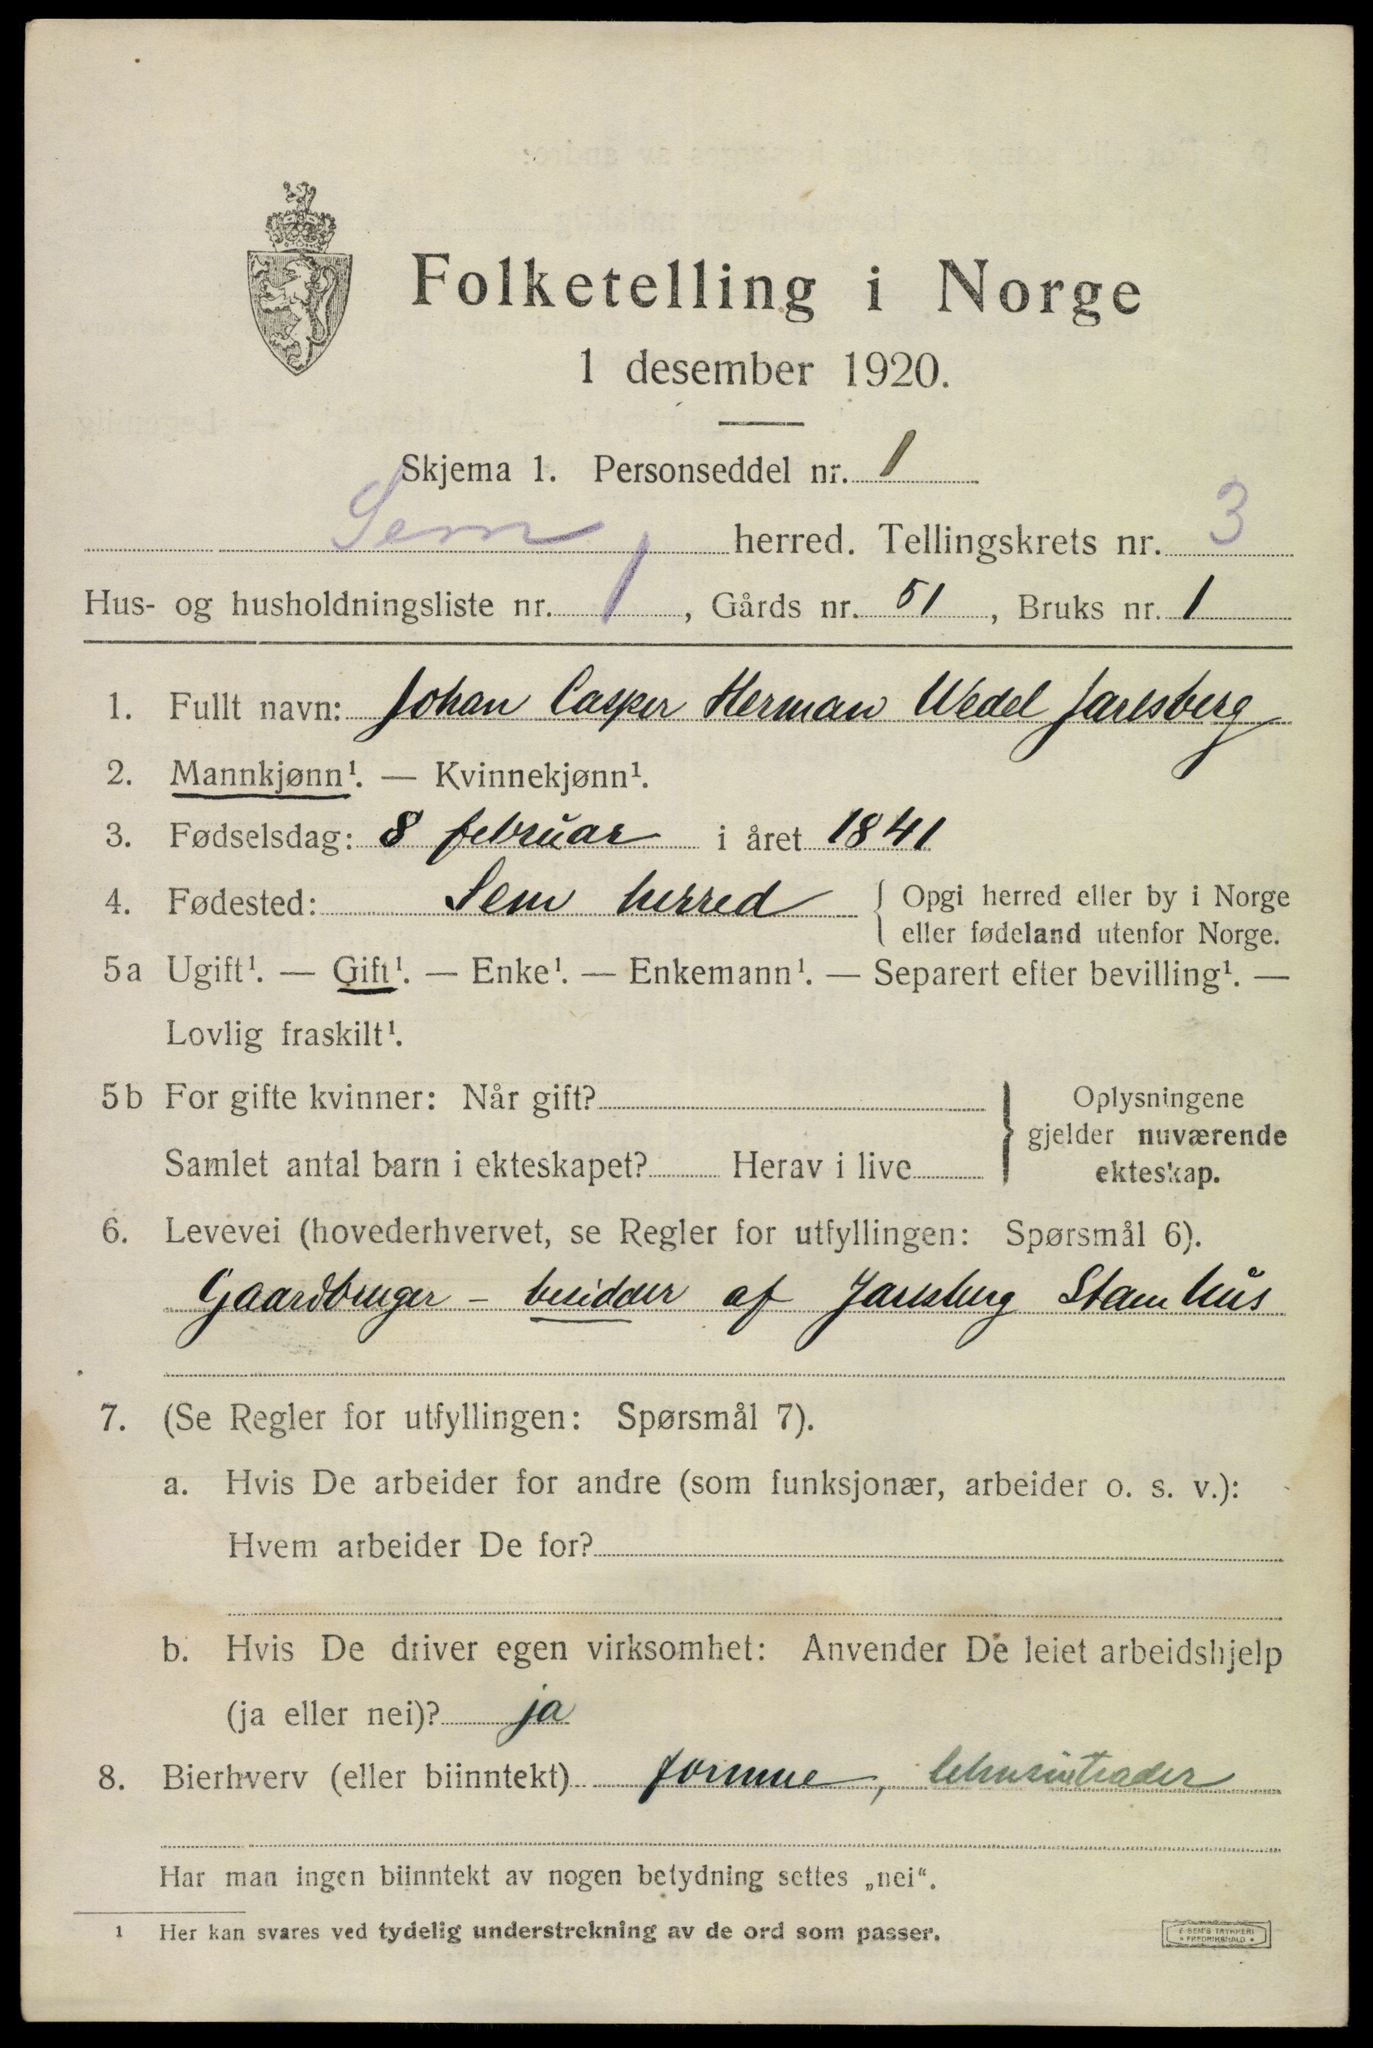 Folketelling i Norge
1 desember 1920.
Skjema 1. Personseddel nr. 1
Sem herred. Tellingskrets nr. 3
Hus- og husholdningsliste nr. 1, Gårds nr. 51, Bruks nr. 1
1. Fullt navn: Johan Casper Herman Wedel Jarlsberg
2. Mannkjønn¹. — Kvinnekjønn¹.
3. Fødselsdag: 8 februar i året 1841
4. Fødested: Sem herred { Opgi herred eller by i Norge
eller fødeland utenfor Norge.
5a Ugift¹. — Gift¹. — Enke¹. — Enkemann¹. — Separert efter bevilling¹. —
Lovlig fraskilt¹.
5b For gifte kvinner: Når gift?
Samlet antal barn i ekteskapet? Herav i live
} Oplysningene
gjelder nuværende
ekteskap.
6. Levevei (hovederhvervet, se Regler for utfyllingen: Spørsmål 6).
Gaardbruger – besidder af Jarlsberg Stamhus
7. (Se Regler for utfyllingen: Spørsmål 7).
a. Hvis De arbeider for andre (som funksjonær, arbeider o. s. v.):
Hvem arbeider De for?
b. Hvis De driver egen virksomhet: Anvender De leiet arbeidshjelp
(ja eller nei)? ja
8. Bierhverv (eller biinntekt) formue,
Har man ingen biinntekt av nogen betydning settes „nei“.
¹ Her kan svares ved tydelig understrekning av de ord som passer.